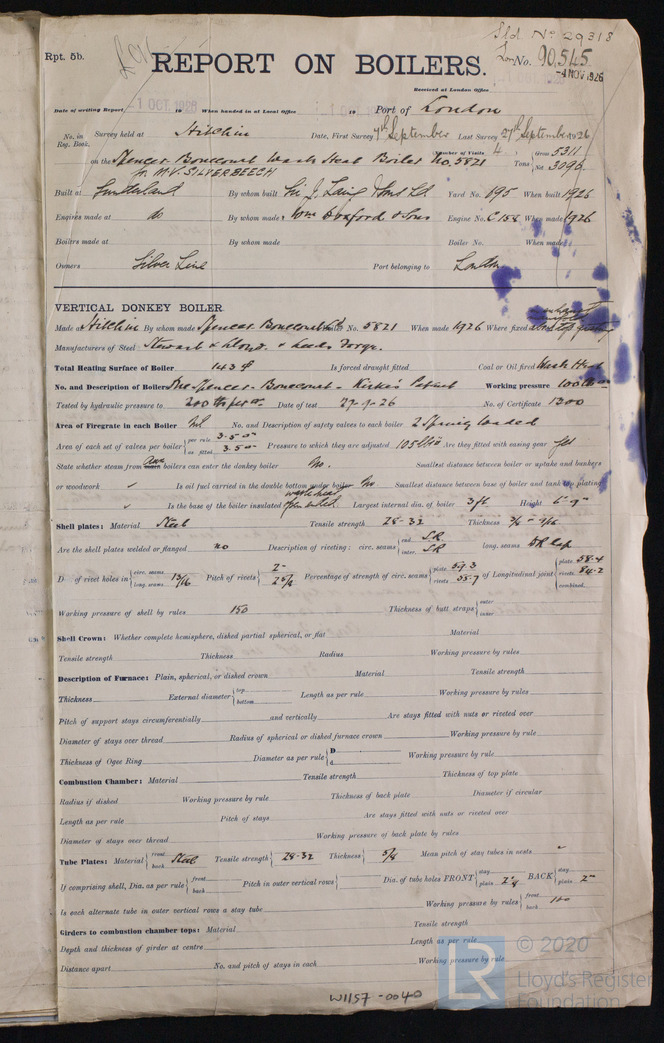 Sld No 29318
Rpt. 5b.
Lon No. 90,545
-4 NOV 1926
REPORT ON BOILERS.
Received at London Office
Date of writing Report 1 OCT 1926 19 When handed in at Local Office 19 Port of London
No. in Reg. Book. Survey held at Hitchin Date, First Survey 7th September Last Survey 27th September 1926
Number of Visits 4
on the Spencer Bonecourt Waste Heat Boiler No. 5821 Tons Gross 5311 Net 3096
for M.V. SILVERBEECH
Built at Sunderland By whom built Sir J. Laing & Sons Ld. Yard No. 695 When built 1926
Engines made at do By whom made Wm Doxford & Sons Engine No. C 154 When made 1926
Boilers made at By whom made Boiler No. When made
Owners Silver Line Port belonging to London
VERTICAL DONKEY BOILER
Made at Hitchin By whom made Spencer Bonecourt Ld Boiler No. 5821 When made 1926 Where fixed
Manufacturers of Steel Stewart & Lloyd. & Leeds Forge.
Total Heating Surface of Boiler 143 Is forced draught fitted Coal or Oil fired Waste Heat
No. and Description of Boilers One Spencer-Bonecourt - Kirke's Patent Working pressure 100
Tested by hydraulic pressure to 200 Date of test 27-9-26 No. of Certificate 1300
Area of Firegrate in each Boiler Nil No. and Description of safety valves to each boiler 2 Spring loaded
Area of each set of valves per boiler per rule 3.5 as fitted 3.5 Pressure to which they are adjusted 105 Are they fitted with easing gear yes
State whether steam from boilers can enter the donkey boiler No. Smallest distance between boiler or uptake and bunkers
or woodwork ✓ Is oil fuel carried in the double bottom under boiler No Smallest distance between base of boiler and tank top plating
✓ Is the base of the boiler insulated waste heat Largest internal dia. of boiler 3 ft Height 6'-9"
Shell plates: Material Steel Tensile strength 28-32 Thickness
Are the shell plates welded or flanged no Description of riveting: circ. seams end S.R. inter. S.R. long. seams DR lap
Dia. of rivet holes in circ. seams long. seams 13/16 Pitch of rivets 2" 2 5/8 Percentage of strength of circ. seams plate 59.3 rivets 55.7 of Longitudinal joint plate 58.4 rivets 84.2 combined
Working pressure of shell by rules 150 Thickness of butt straps outer inner
Shell Crown: Whether complete hemisphere, dished partial spherical, or flat Material
Tensile strength Thickness Radius Working pressure by rules
Description of Furnace: Plain, spherical, or dished crown Material Tensile strength
Thickness External diameter top bottom Length as per rule Working pressure by rules
Pitch of support stays circumferentially and vertically Are stays fitted with nuts or riveted over
Diameter of stays over thread Radius of spherical or dished furnace crown Working pressure by rule
Thickness of Ogee Ring Diameter as per rule D d Working pressure by rule
Combustion Chamber: Material Tensile strength Thickness of top plate
Radius if dished Working pressure by rule Thickness of back plate Diameter if circular
Length as per rule Pitch of stays Are stays fitted with nuts or riveted over
Diameter of stays over thread Working pressure of back plate by rules
Tube Plates: Material front back Steel Tensile strength 28-32 Thickness 5/8 Mean pitch of stay tubes in nests
If comprising shell, Dia. as per rule front back Pitch in outer vertical rows Dia. of tube holes FRONT stay plain 2 1/8 BACK stay plain 2"
Is each alternate tube in outer vertical rows a stay tube Working pressure by rules front back 100
Girders to combustion chamber tops: Material Tensile strength
Depth and thickness of girder at centre Length as per rule
Distance apart No. and pitch of stays in each Working pressure by rule
W1157-0040
LR
© 2020
Lloyd's Register
Foundation